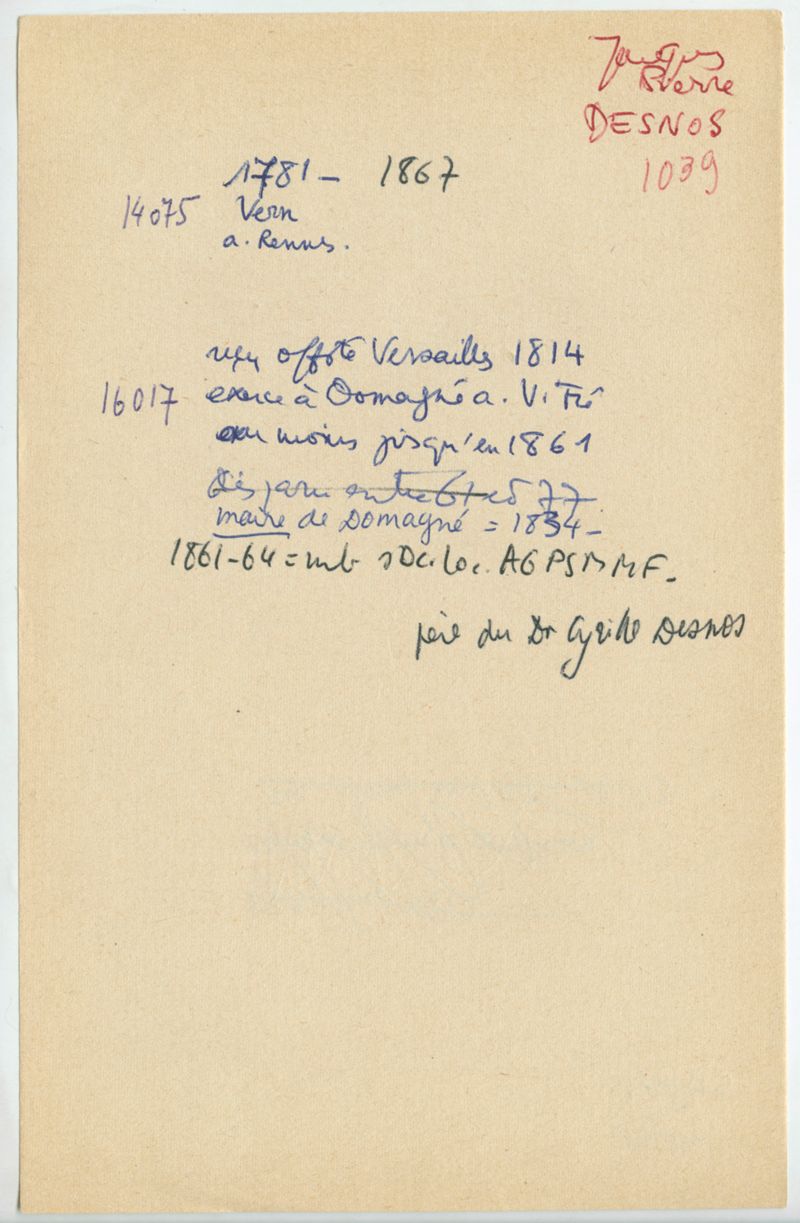 Jacques
Pierre
DESNOS
1039
1781 - 1867
14075 Vern
a. Rennes.
reçu offste Versailles 1814
16017 exerce à Domagné a. Vitré
au moins jusqu'en 1861
Disparu entre 61 et 77
maire de Domagné = 1834 -
1861-64 = mb sDc. loc. AGPSMMF.
père du Dr Cyrille Desnos